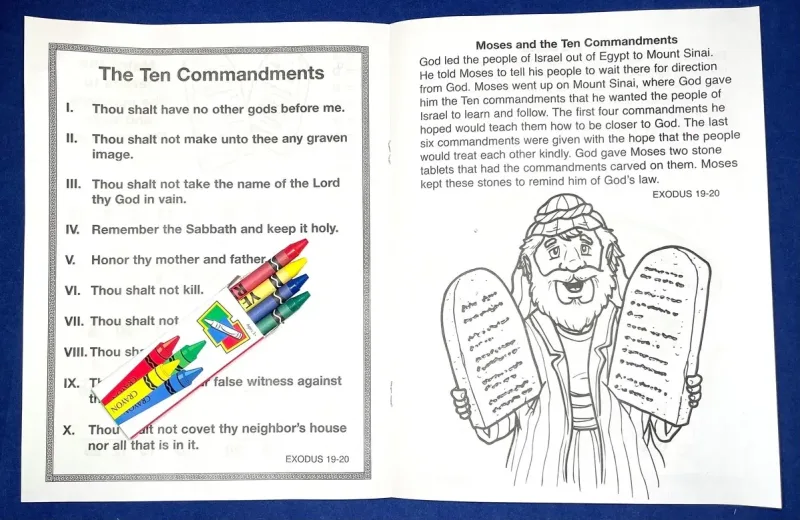 The Ten Commandments
I. Thou shalt have no other gods before me.
II. Thou shalt not make unto thee any graven
image.
III. Thou shalt not take the name of the Lord
thy God in vain.
IV. Remember the Sabbath and keep it holy.
V. Honor thy mother and father
VI. Thou shalt not kill.
VII. Thou shalt not
VIII. Thou
IX. false witness against
X. Thou not covet thy neighbor's house
nor all that is in it.
EXODUS 19-20
CRAYON
CRAYON
Moses and the Ten Commandments
God led the people of Israel out of Egypt to Mount Sinai.
He told Moses to tell his people to wait there for direction
from God. Moses went up on Mount Sinai, where God gave
him the Ten commandments that he wanted the people of
Israel to learn and follow. The first four commandments he
hoped would teach them how to be closer to God. The last
six commandments were given with the hope that the people
would treat each other kindly. God gave Moses two stone
tablets that had the commandments carved on them. Moses
kept these stones to remind him of God's law.
EXODUS 19-20